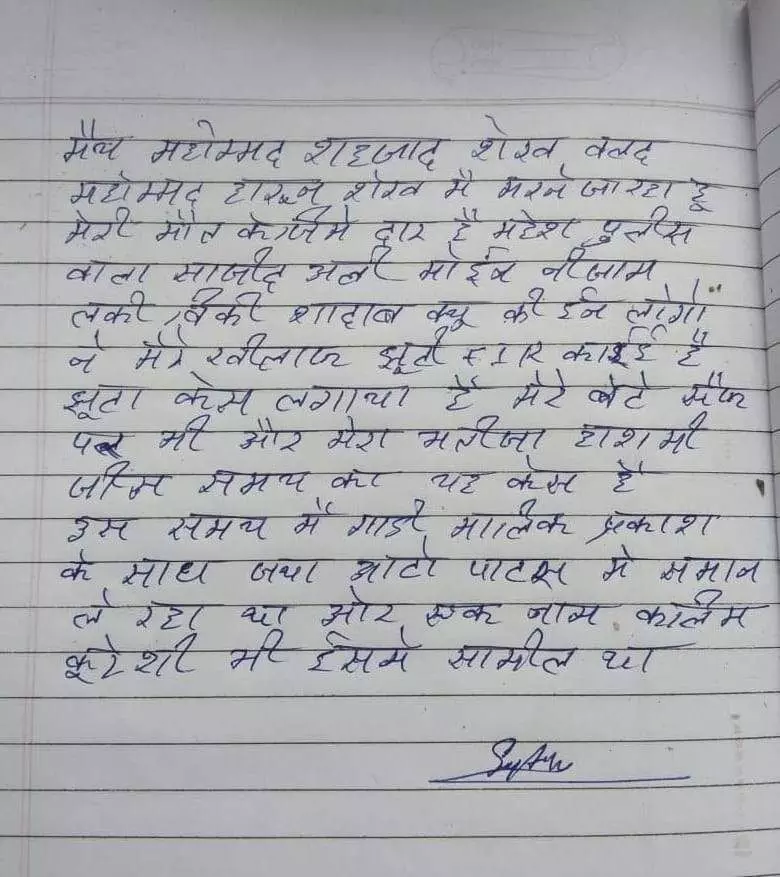 मैय महोम्मद शहजाद शेख वलद
महोम्मद हारून शेख मै मरने जा रहा हू
मेरी मौत के जिमे दार है महेश पुलीस
वाला साजीद अली मोईन नीजाम
लकी, विकी शाहाब क्यू की ईन लोगो
ने मेरे खीलाफ झूटी FIR काईई है
झूटा केस लगाया है मेरे बेटे सैफ
पर भी और मेरा भतीजा हाशमी
जीस समय का यह केस है
इस समय मैं गाडी मालिक प्रकाश
के साथ जया आटो पाटस मे समान
ले रहा था ओर एक नाम कलिम
कूरेशी भी ईसमे सामील था